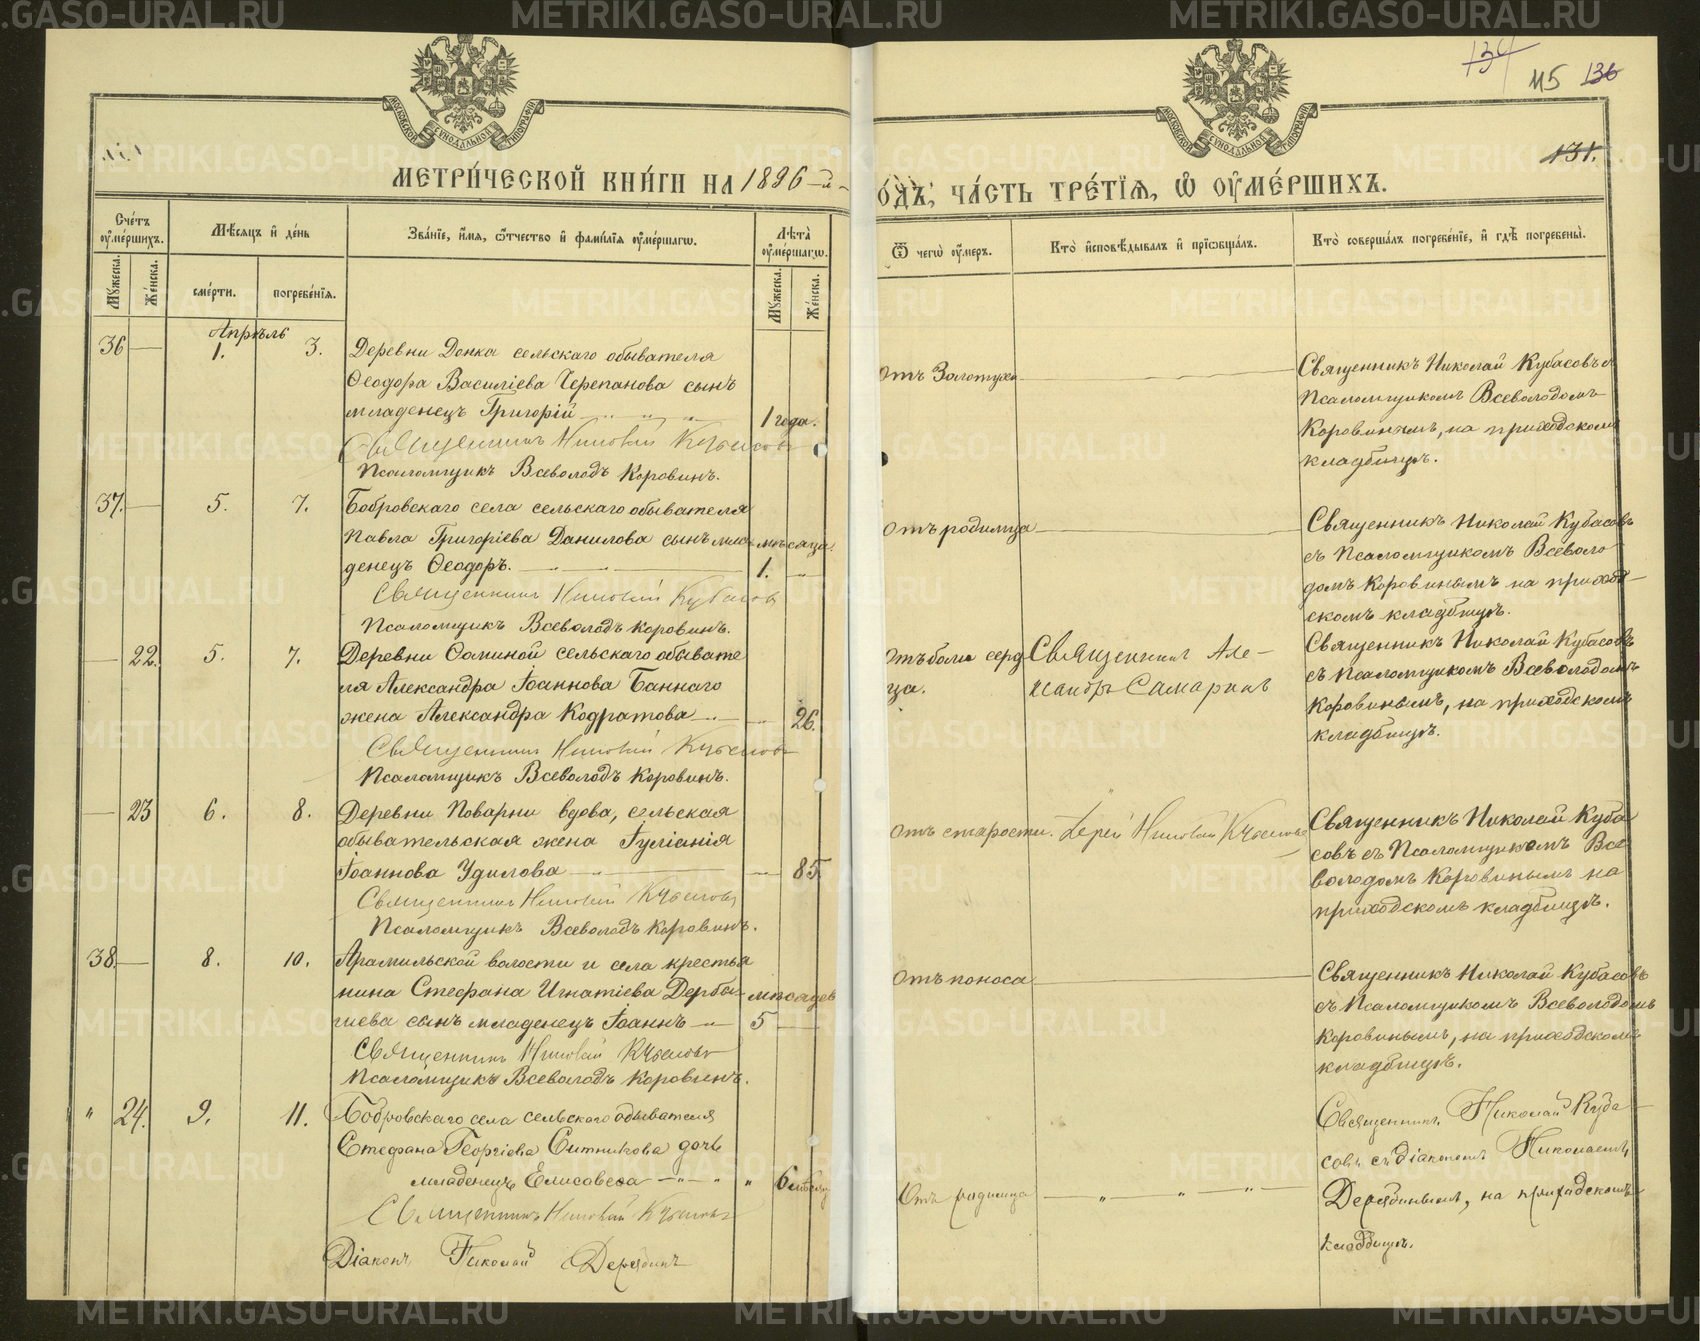 134
115 136
131.
МОСКОВСКОЙ СѴНОДАЛЬНОЙ ТИПОГРАФІИ
МОСКОВСКОЙ СѴНОДАЛЬНОЙ ТИПОГРАФІИ
МЕТРИ́ЧЕСКОЙ КНИ́ГИ НА 1896-й
О́ДЪ, ЧА́СТЬ ТРЕ́ТЇѦ, Ѡ҆ ОУ҆МЕ́РШИХЪ.
Сче́тъ оу҆ме́ршихъ.
Мꙋжеска.
Же́нска.
Мѣ́сяцъ и҆ де́нь
сме́рти.
погребе́нїѧ.
Зва́нїе, и҆́мѧ, ѻ҆́тчество и҆ фами́лїѧ оу҆ме́ршагѡ.
Лѣ́та оу҆ме́ршагѡ.
Мꙋжеска.
Же́нска.
Ѿ чегѡ̀ оу҆́меръ.
Кто̀ и҆сповѣ́дывалъ и҆ прїѡбща́лъ.
Кто̀ соверша́лъ погребе́нїе, и҆ гдѣ̀ погребены̀.
Апрѣль
36 — 1. 3. Деревни Донка сельскаго обывателя
Ѳеодора Василіева Черепанова сынъ
младенецъ Григорій — 1 года.
Священникъ Николай Кубасовъ
Псаломщикъ Всеволодъ Коровинъ.
отъ Золотухи
Священникъ Николай Кубасовъ съ
Псаломщикомъ Всеволодомъ
Коровинымъ, на приходскомъ
кладбищѣ.
37. — 5. 7. Бобровскаго села сельскаго обывателя
Павла Григоріева Данилова сынъ мла- мѣсяца.
денецъ Ѳеодоръ. — 1. —
Священникъ Николай Кубасовъ
Псаломщикъ Всеволодъ Коровинъ.
отъ родимца
Священникъ Николай Кубасовъ
съ Псаломщикомъ Всеволо
домъ Коровинымъ на приход-
скомъ кладбищѣ.
— 22. 5. 7. Деревни Фоминой сельскаго обывате
ля Александра Іоаннова Баннаго
жена Александра Кодратова — 26.
Священникъ Николай Кубасовъ
Псаломщикъ Всеволодъ Коровинъ.
отъ боли серд
ца.
Священникъ Але-
ксандръ Самаринъ
Священникъ Николай Кубасовъ
съ Псаломщикомъ Всеволодомъ
Коровинымъ, на приходскомъ
кладбищѣ.
— 23 6. 8. Деревни Поварни вдова, сельская
обывательская жена Іуліанія
Іоаннова Удилова — 85.
Священникъ Николай Кубасовъ
Псаломщикъ Всеволодъ Коровинъ.
отъ старости.
Іерей Николай Кубасовъ
Священникъ Николай Куба
совъ съ Псаломщикомъ Все
володомъ Коровинымъ на
приходскомъ кладбищѣ.
38. — 8. 10. Арамильской волости и села крестья
нина Стефана Игнатіева Дерба- мѣсяцев
гиева сынъ младенецъ Іоаннъ — 5 —
Священникъ Николай Кубасовъ
Псаломщикъ Всеволодъ Коровинъ.
отъ поноса
Священникъ Николай Кубасовъ
съ Псаломщикомъ Всеволодомъ
Коровинымъ, на приходскомъ
кладбищѣ.
" 24. 9. 11. Бобровскаго села сельскаго обывателя
Стефана Георгіева Ситникова дочь
младенецъ Елисовеѳа — " 6 мѣсяц
Священникъ Николай Кубасовъ
Діаконъ Николай Дерябинъ
Отъ родимца
Священникъ Николай Куба
совъ съ діакономъ Николаемъ
Дерябинымъ, на приходскомъ
кладбищѣ.
METRIKI.GASO-URAL.RU